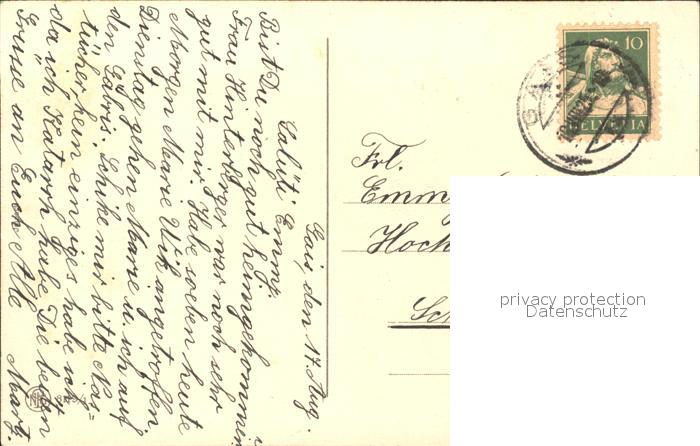 Gais, den 17. Aug.
Salüti Emmi.
Bist Du noch gut heimgekommen?
Frau Hinterberger war noch sehr
gut mit mir. Habe soeben heute
Morgen Marie Wik angetroffen
Dienstag gehen Marie u. ich auf
den Gäbris. Schike mir bitte Nas=
tücher hein einziges habe ich
da ich Katarrh habe Die besten
Grüsse an Euch Alle Marty
Frl.
Emm
Hoch
Sch
10
HELVETIA
GAIS
privacy protection
Datenschutz